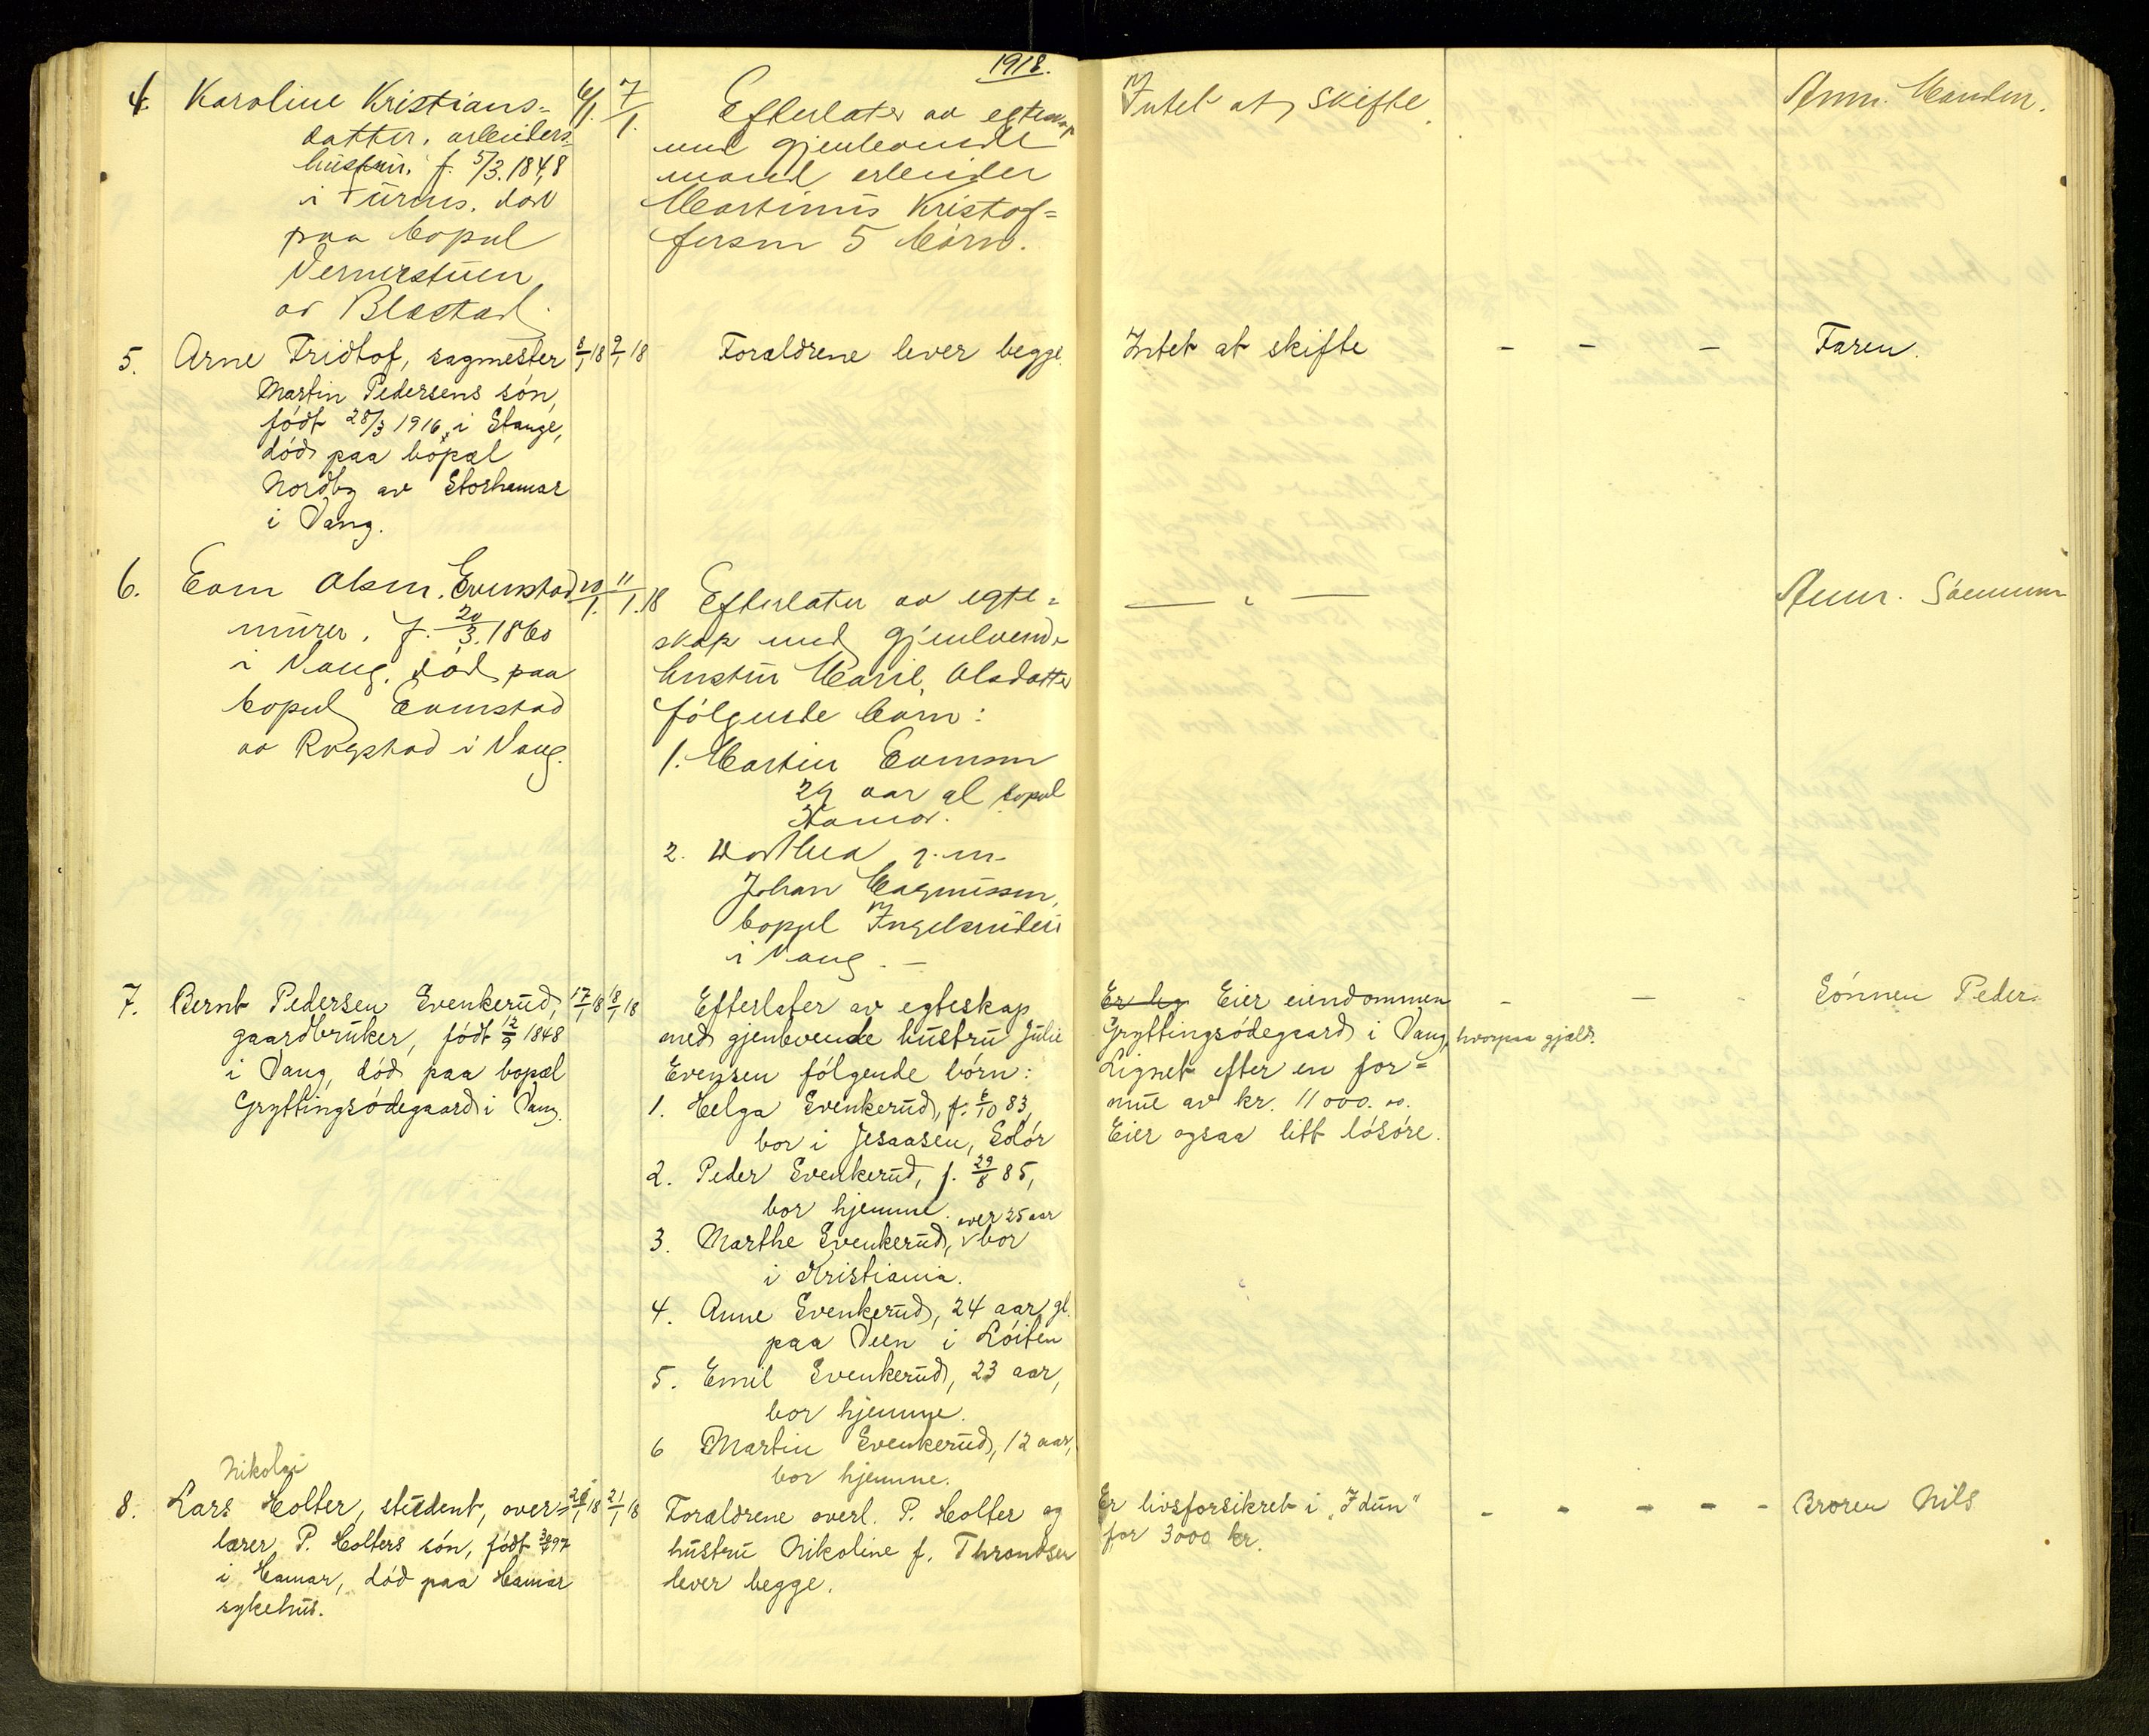 1918.
4. Karoline Kristians=
datter, arbeiders
hustru, f. 5/3. 1848
i Furnes, død
paa bopæl
Vernerstuen
av Blæstad.
6/1. 7/1.
Efterlater av egteskap
med gjenlevende
mand arbeider
Martinus Kristof=
fersen 5 børn.
Intet at skifte.
Anm. Manden.
5. Arne Fridtof, sagmester
Martin Pedersens søn,
født 28/3 1916, i Stange,
død paa bopæl
Nordby av Storhamar
i Vang.
8/1 18 9/1 18
Forældrene lever begge.
Intet at skifte
- - -
Faren.
6. Even Olsen Evenstad
murer, f. 20/3. 1860
i Vang, død paa
bopæl Evenstad
av Rogstad i Vang.
10/1. 11/1. 18
Efterlater av egte=
skap med gjenlevende
hustru Maril. Olsdatter
følgende børn:
1. Martin Evensen
29 aar gl bopæl
Hamar.
2. Dorthea g. m.
Johan Magnussen,
bopæl Ingelsrudeie
i Vang. -
— " —
Anm. Sønnen
7. Bernt Pedersen Evenkerud,
gaardbruker, født 12/9 1848
i Vang, død paa bopæl
Gryttingsødegaard i Vang.
17/1 18 18/1 18
Efterlater av egteskap
med gjenlevende hustru Julie
Evensen følgende børn:
1. Helga Evenkerud, f. 6/10 83,
bor i Jesaasen, Solør
2. Peder Evenkerud, f. 29/8 85,
bor hjemme.
over 25 aar
3. Marthe Evenkerud, v bor
i Kristiania.
4. Anne Evenkerud, 24 aar gl.
paa Veen i Løiten
5. Emil Evenkerud, 23 aar,
bor hjemme.
6 Martin Evenkerud, 12 aar,
bor hjemme.
Er lig Eier eiendommen
Gryttingsødegaard i Vang, hvorpaa gjæld.
Lignet efter en for=
mue av kr. 11 000. 00.
Eier ogsaa litt løsøre.
- - -
Sønnen Peder.
Nikolai
8. Lars Holter, student, over=
lærer P. Holters søn, født 97
i Hamar, død paa Hamar
sykehus.
20/1 18 21/1 18
Forældrene overl. P. Holter og
hustru Nikoline f. Throndsen
lever begge.
Er livsforsikret i „Idun"
for 3000 kr.
- - - - -
Broren Nils